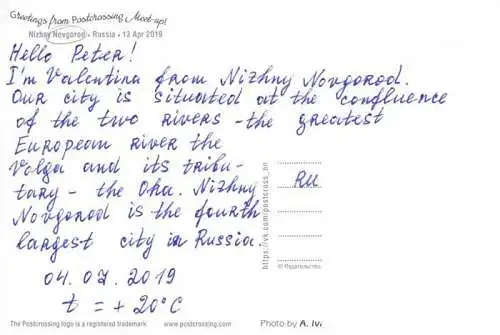 Greetings from Postcrossing Meet-up!
Nizhny Novgorod • Russia • 13 Apr 2019
Hello Peter!
I'm Valentina from Nizhny Novgorod.
Our city is situated at the confluence
of the two rivers - the greatest
European river the
Volga and its tribu-
tary - the Oka. Nizhny
Novgorod is the fourth
largest city in Russia.
04.07.2019
t = + 20°C
RU
https://vk.com/postcross_nn
The Postcrossing logo is a registered trademark.
www.postcrossing.com
Photo by A. Iv